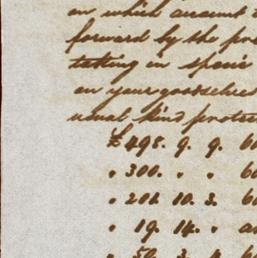 on which account
forward by the pre
taking in specie
on your goodselves
usual kind protec
£ 498. 9. 9. 60
" 300. " " 60
" 201. 10. 3. 60
" 19. 14. "
" 50. 3.